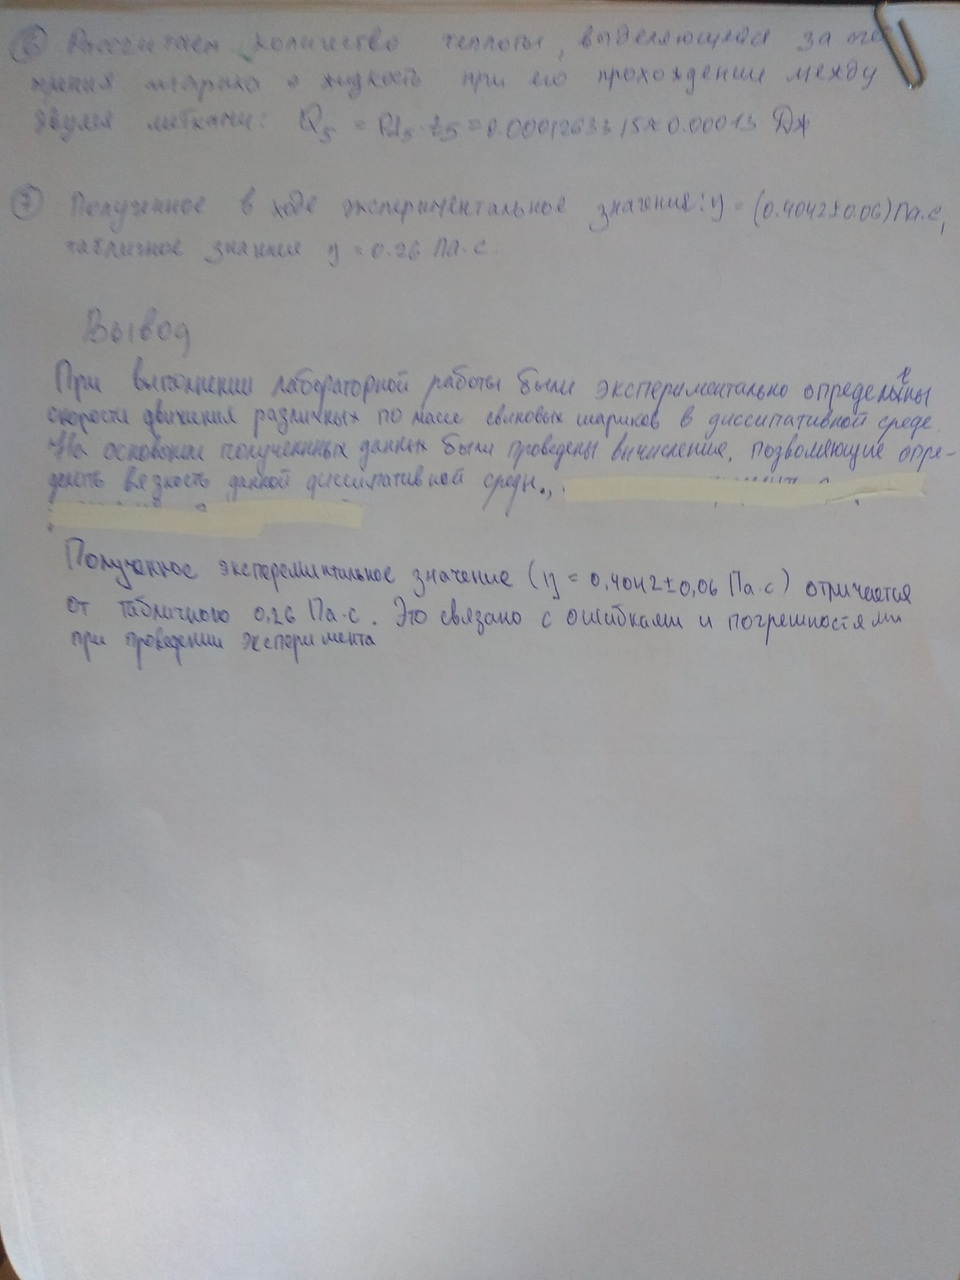 ⑥ Рассчитаем количество теплоты, выделяющееся за
шарика о жидкость при его прохождении между
двумя метками: Q₅ = P₅ · t₅ = 0.00012633 ≈ 0.00013 Дж
⑦ Полученное в ходе экспериментальное значение: η = (0.4042±0.06) Па·с,
табличное значение η = 0.26 Па·с.
Вывод
При выполнении лабораторной работы были экспериментально определены
скорости движения различных по массе свинцовых шариков в диссипативной среде.
На основании полученных данных были проведены вычисления, позволяющие опре-
делить вязкость данной диссипативной среды.
Полученное эксперементальное значение (η = 0,4042±0,06 Па·с) отличается
от табличного 0,26 Па·с. Это связано с ошибками и погрешностями
при проведении эксперимента